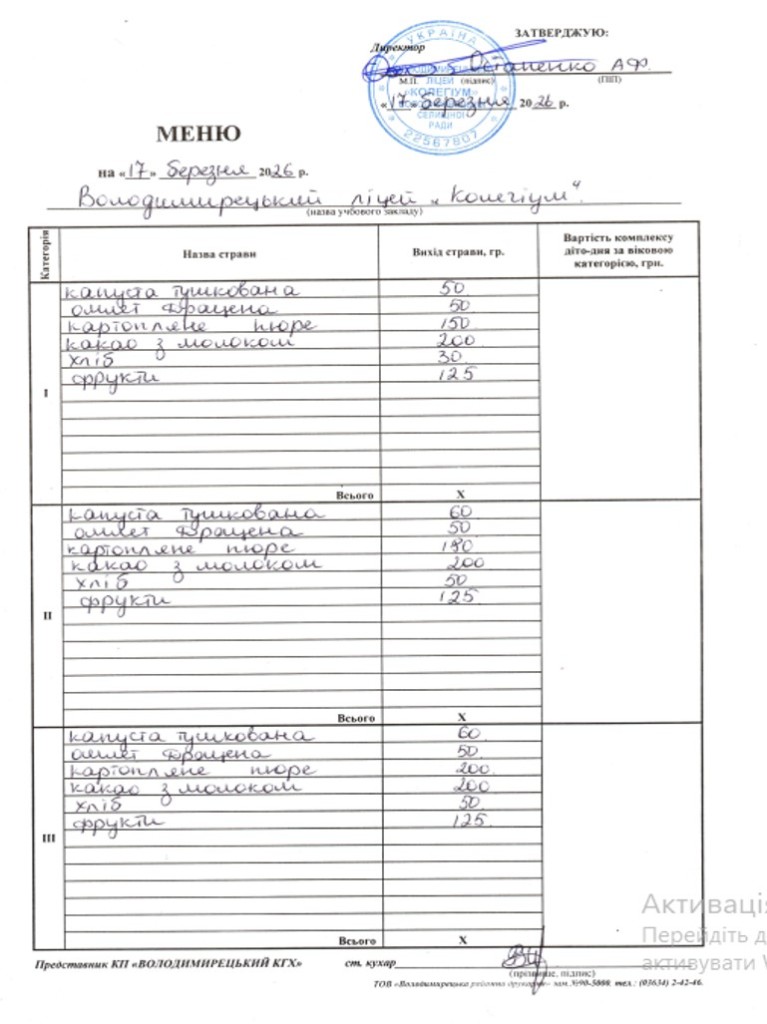 ЗАТВЕРДЖУЮ:
Директор
Остапенко А.Ф.
М.П. (підпис) (ПІП)
«17» березня 2026 р.
УКРАЇНА
ЛІЦЕЙ
«КОЛЕГІУМ»
СЕЛИЩНОЇ
РАДИ
22567807
МЕНЮ
на «17» березня 2026 р.
Володимирецький ліцей „Колегіум"
(назва учбового закладу)
Категорія Назва страви Вихід страви, гр. Вартість комплексу діто-дня за віковою категорією, грн.
I
капуста тушкована 50
омлет Драчена 50
картопляне пюре 150
какао з молоком 200
хліб 30
фрукти 125
Всього X
II
капуста тушкована 60
омлет Драчена 50
картопляне пюре 180
какао з молоком 200
хліб 50
фрукти 125
Всього X
III
капуста тушкована 60
омлет Драчена 50
картопляне пюре 200
какао з молоком 200
хліб 50
фрукти 125
Всього X
Представник КП «ВОЛОДИМИРЕЦЬКИЙ КГХ» ст. кухар
(прізвище, підпис)
ТОВ «Володимирецька районна друкарня» зам.№90-5000. тел.: (03634) 2-42-46.
Активаці
Перейдіть д
активувати